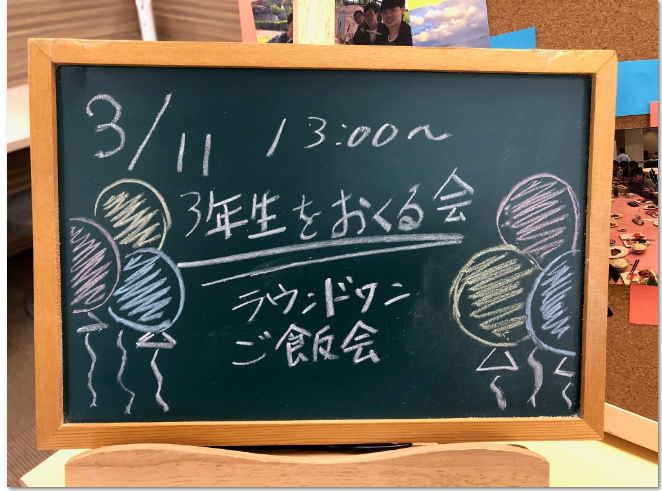 3/11 13:00〜
3年生をおくる会
ラウンドワン
ご飯会